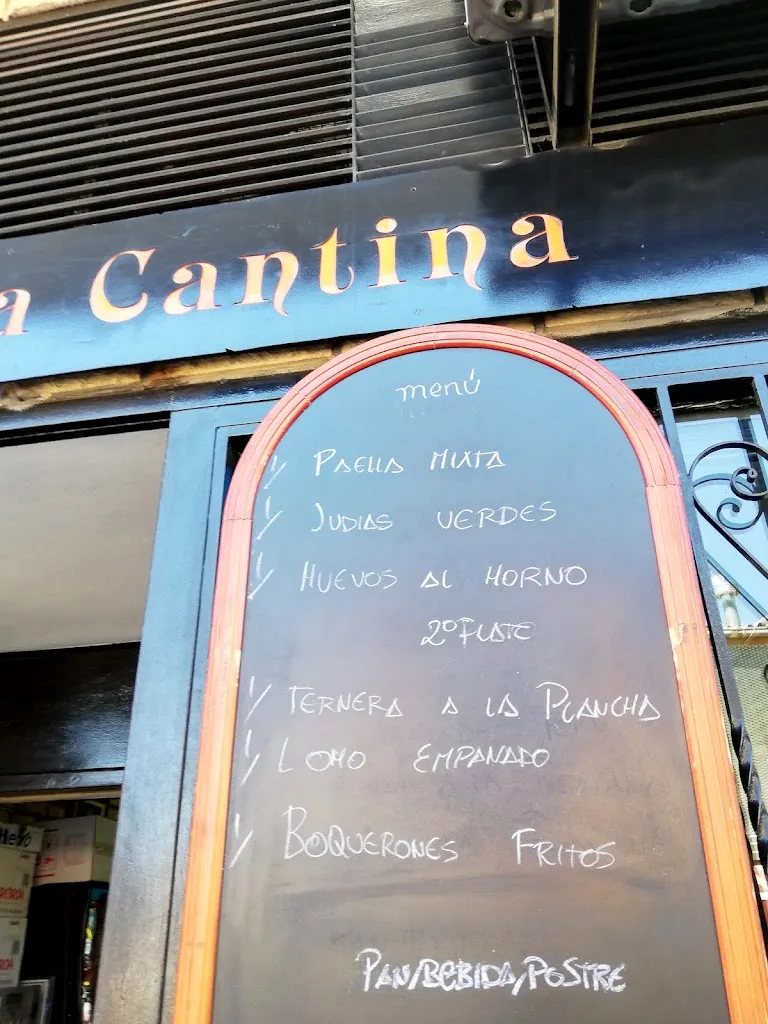 a Cantina
menú
Paella Mixta
Judias verdes
Huevos al horno
2º Plato
Ternera a la Plancha
Lomo Empanado
Boquerones Fritos
Pan/Bebida/Postre